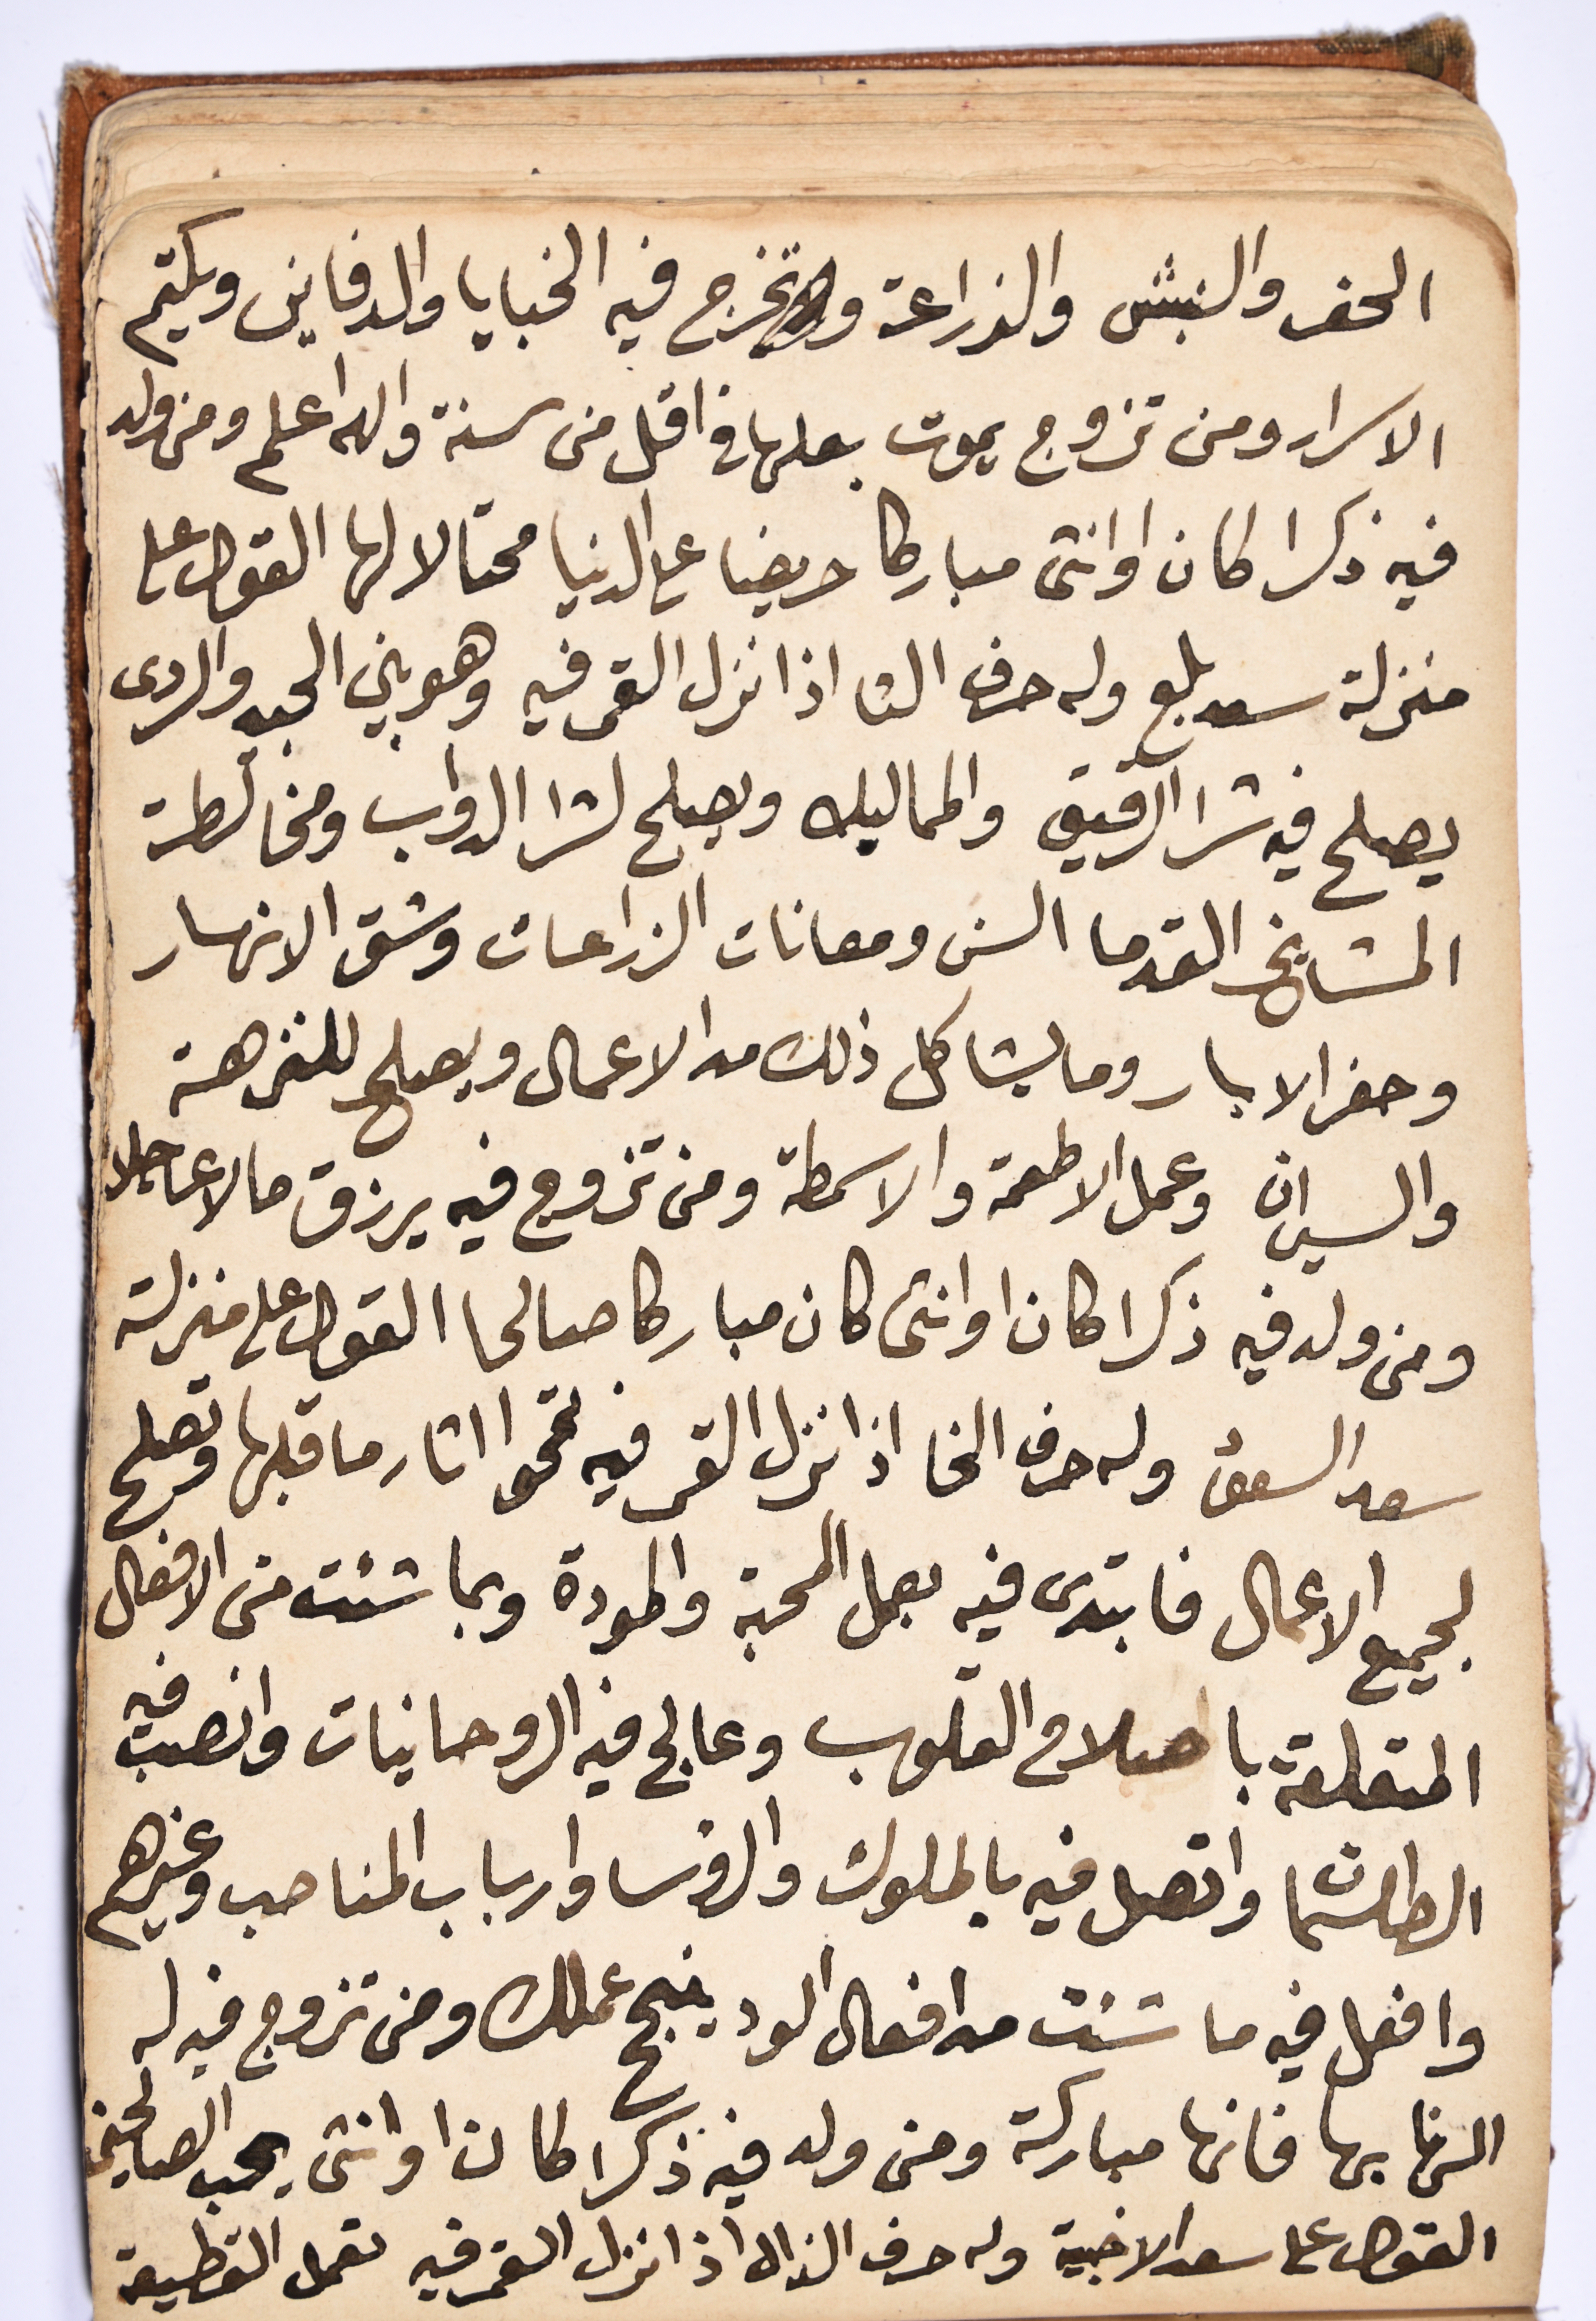 الحفر والنبش والزراعة وتخرج فيه الخبايا والدفاين ويكتم
الاسرار ومن تزوج يموت بعلها في اقل من سنة والله اعلم ومن ولد
فيه ذكرا كان او انثى مباركا حريصا على الدنيا محتالا لها القول على
منزلة سعد بلع وله حرف الثا اذا نزل القمر فيه وهو بين الجيد والردى
يصلح فيه شرا الرقيق والمماليك ويصلح لشرا الدواب ومخالطة
المشايخ القدما السن ومعانات الزراعات وشق الانهار
وحفر الابار وما يشاكل ذلك من الاعمال ويصلح للنزهة
والسيران وعمل الاطعمة والاسمطة ومن تزوج فيه يرزق مالا عاجلا
ومن ولد فيه ذكرا كان او انثى كان مباركا صالحا القول على منزلة
سعد السعود وله حرف الخا اذا نزل القمر فيه تمحو اثار ما قبلها وتصلح
لجميع الاعمال فابتدى فيه بعمل المحبة والمودة وبما شئت من الافعال
المتعلقة باصلاح القلوب وعالج فيه الروحانيات وانصب فيه
الطلسمات واتصل فيه بالملوك والروسا وارباب المناصب وغيرهم
وافعل فيه ما شئت من افعال الود ينجح عملك ومن تزوج فيه له
الهنا بها فانها مباركة ومن ولد فيه ذكرا كان او انثى يحب الصالحين
القول على سعد الاخبية وله حرف الذال اذا نزل القمر فيه تعمل القطيعة